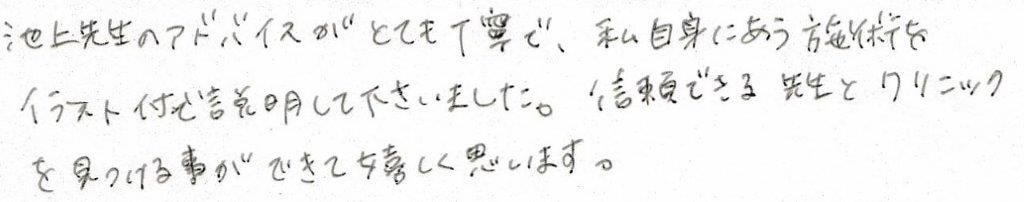 池上先生のアドバイスがとても丁寧で、私自身にあう施術を
イラスト付で説明して下さいました。信頼できる先生とクリニック
を見つける事ができて嬉しく思います。